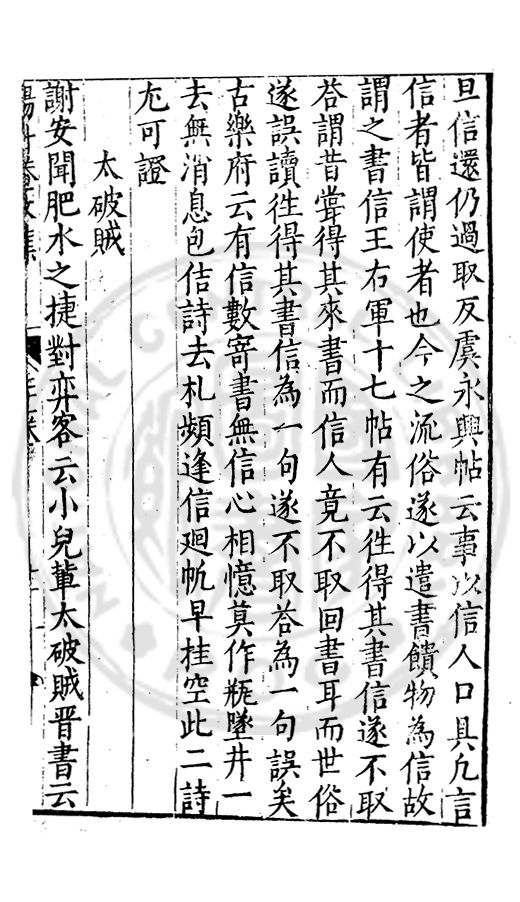 旦信還仍過取反虞永興帖云事以信人口具凢言
信者皆謂使者也今之流俗遂以遣書饋物為信故
謂之書信王右軍十七帖有云徃得其書信遂不取
荅謂昔甞得其來書而信人竟不取回書耳而世俗
遂誤讀徃得其書信為一句遂不取荅為一句誤矣
古樂府云有信數寄書無信心相憶莫作瓶墜井一
去無消息包佶詩去札頻逢信廻帆早挂空此二詩
尤可證
太破賊
謝安聞肥水之捷對弈客云小兒軰太破賊晋書云